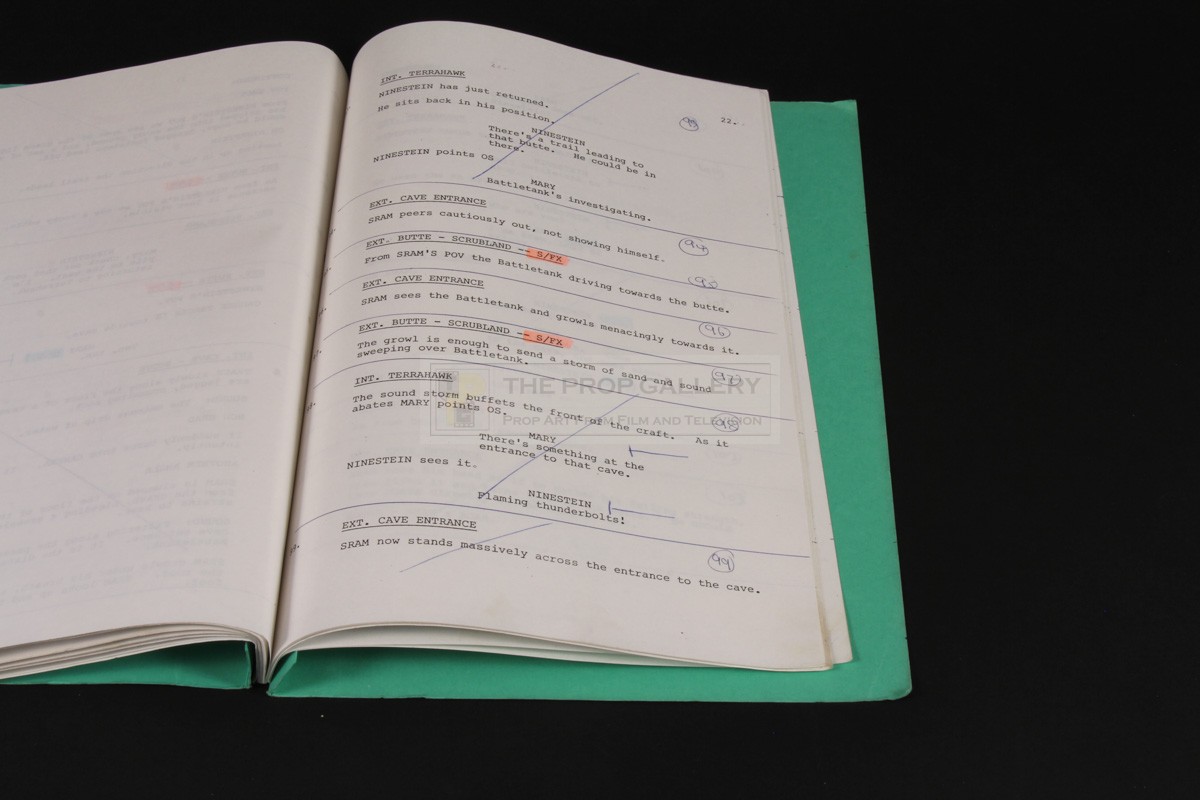 INT. TERRAHAWK
NINESTEIN has just returned.
He sits back in his position.
93
22.
NINESTEIN
There's a trail leading to
that butte. He could be in
there.
NINESTEIN points OS
MARY
Battletank's investigating.
EXT. CAVE ENTRANCE
94
SRAM peers cautiously out, not showing himself.
EXT. BUTTE - SCRUBLAND -- S/FX
95
From SRAM'S POV the Battletank driving towards the butte.
EXT. CAVE ENTRANCE
96
SRAM sees the Battletank and growls menacingly towards it.
EXT. BUTTE - SCRUBLAND -- S/FX
97
The growl is enough to send a storm of sand and sound
sweeping over Battletank.
THE PROP GALLERY
PROP ART FROM FILM AND TELEVISION
INT. TERRAHAWK
98
The sound storm buffets the front of the craft. As it
abates MARY points OS.
MARY
There's something at the
entrance to that cave.
NINESTEIN sees it.
NINESTEIN
Flaming thunderbolts!
EXT. CAVE ENTRANCE
99
SRAM now stands massively across the entrance to the cave.